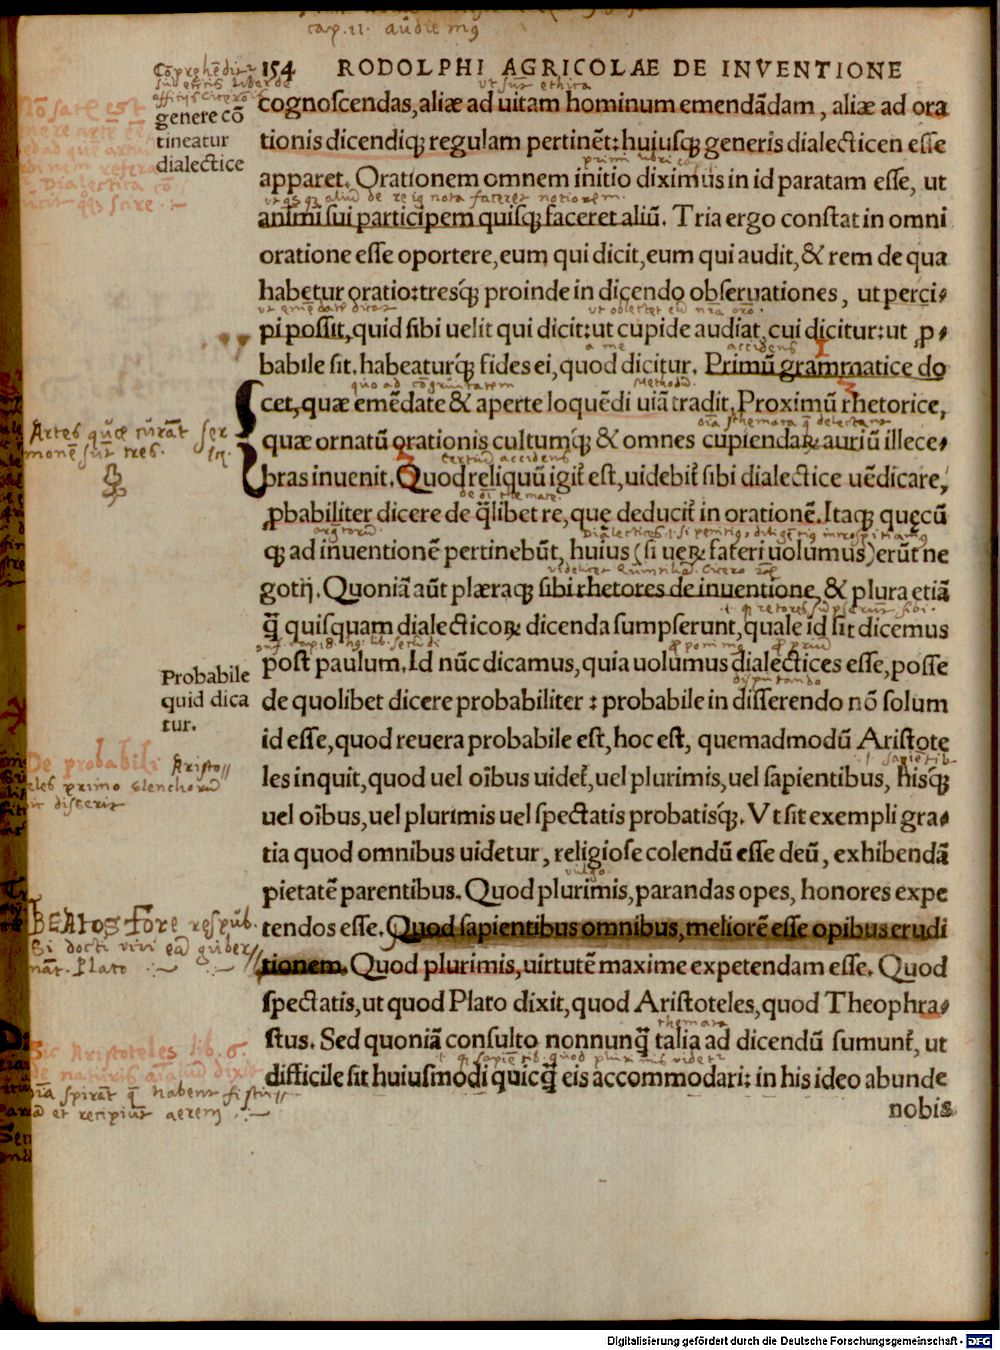 cap. 11. audie
154 RODOLPHI AGRICOLAE DE INVENTIONE
ut sūt ethica
cognoſcendas,aliæ ad uitam hominum emendādam, aliæ ad ora
tionis dicendiq́; regulam pertinēt:huiuſq́; generis dialecticen eſſe
apparet. Orationem omnem initio diximus in id paratam eſſe, ut
animi ſui participem quiſq́; faceret aliū. Tria ergo conſtat in omni
oratione eſſe oportere,eum qui dicit,eum qui audit,& rem de qua
habetur oratio:tresq́; proinde in dicendo obſeruationes, ut perci-
pi poſſit,quid ſibi uelit qui dicit:ut cupide audiat,cui dicitur:ut ꝓ-
a me accidens
babile ſit, habeaturq́; fides ei,quod dicitur. Primū grammatice do
Methodū
cet,quæ emēdate & aperte loquēdi uiā tradit,Proximū rhetorice,
quæ ornatū orationis cultumq́; & omnes cupiendaꝝ auriū illece-
tertiū accidens
bras inuenit. Quod reliquū igit̃ eſt,uidebit̃ ſibi dialectice uēdicare,
ꝓbabiliter dicere de q̄libet re,quę deducit̃ in orationē.Itaq; quęcū
q; ad inuentionē pertinebūt, huius (ſi ueꝝ fateri uolumus)erūt ne
gotij. Quoniā aūt plæraq; ſibi rhetores de inuentione, & plura etiā
q̄ quiſquam dialecticoꝝ dicenda ſumpſerunt,quale id ſit dicemus
poſt paulum. Id nūc dicamus,quia uolumus dialectices eſſe,poſſe
disputando
de quolibet dicere probabiliter : probabile in diſſerendo nō ſolum
id eſſe,quod reuera probabile eſt,hoc eſt, quemadmodū Ariſtote
les inquit,quod uel oībus uidet̃,uel plurimis,uel ſapientibus, hisq́;
uel oībus,uel plurimis uel ſpectatis probatisq́;. Vt ſit exempli gra-
tia quod omnibus uidetur, religioſe colendū eſſe deū, exhibendā
vulgo
pietatē parentibus. Quod plurimis,parandas opes, honores expe
tendos eſſe. Quod ſapientibus omnibus,meliorē eſſe opibus erudi
tionem. Quod plurimis,uirtutē maxime expetendam eſſe. Quod
ſpectatis,ut quod Plato dixit,quod Ariſtoteles,quod Theophra-
themata
ſtus. Sed quoniā conſulto nonnunq̄ talia ad dicendū ſumunt̃, ut
difficile ſit huiuſmodi quicq̄ eis accommodari: in his ideo abunde
nobis
genere cō
tineatur
dialectice
Artes quæ curāt ser
monē sūt tres.
Probabile
quid dica
tur.
De probabili Aristo
teles primo elenchorū
disserit
BEAtos fore respub.
Si docti viri eā guber
nāt. Plato
Sic Aristoteles lib. 6.
de naturis aīaliū dixit
spirāt q̄ habent fistu
et recipiūt aerem
Digitalisierung gefördert durch die Deutsche Forschungsgemeinschaft - DFG